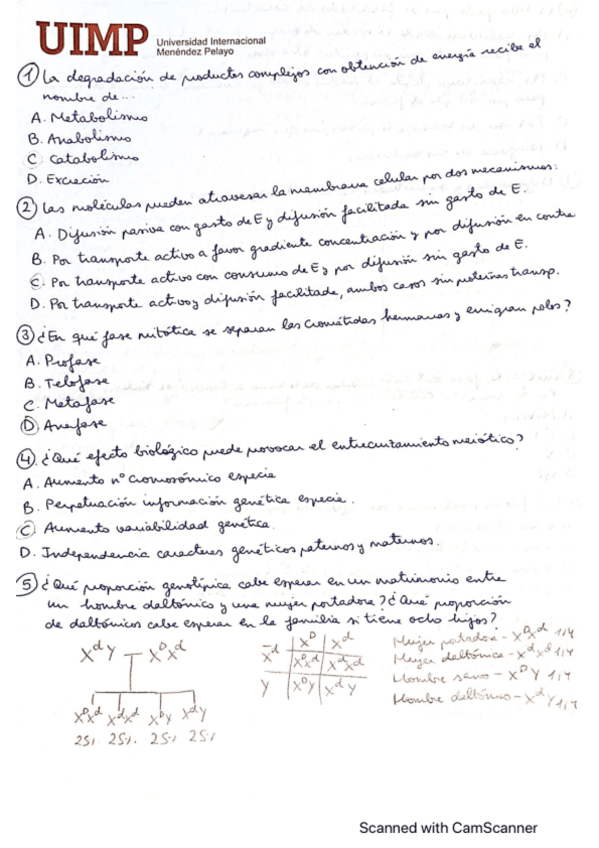 UIMP Universidad Internacional
Menéndez Pelayo
① La degradación de productos complejos con obtención de energía recibe el
nombre de...
A. Metabolismo
B. Anabolismo
C. Catabolismo
D. Excreción
② Las moléculas pueden atravesar la membrana celular por dos mecanismos:
A. Difusión pasiva con gasto de E y difusión facilitada sin gasto de E.
B. Por transporte activo a favor gradiente concentración y por difusión en contra
C. Por transporte activo con consumo de E y por difusión sin gasto de E.
D. Por transporte activo y difusión facilitada, ambos casos sin proteínas transp.
③ ¿En qué fase mitótica se separan las cromátidas hermanas y emigran polos?
A. Profase
B. Telofase
C. Metafase
D. Anafase
④ ¿Qué efecto biológico puede provocar el entrecruzamiento meiótico?
A. Aumento nº cromosómico especie
B. Perpetuación información genética especie.
C. Aumento variabilidad genética.
D. Independencia caracteres genéticos paternos y maternos.
⑤ ¿Qué proporción genotípica cabe esperar en un matrimonio entre
un hombre daltónico y una mujer portadora? ¿Qué proporción
de daltónicos cabe esperar en la familia si tiene ocho hijos?
X^d Y — X^D X^d
X^D X^d X^d X^d X^D Y X^d Y
25%. 25%. 25% 25%
X^D X^d
X^d X^D X^d X^d X^d
Y X^D Y X^d Y
Mujer portadora - X^D X^d 1/4
Mujer daltónica - X^d X^d 1/4
Hombre sano - X^D Y 1/4
Hombre daltónico - X^d Y 1/4
Scanned with CamScanner